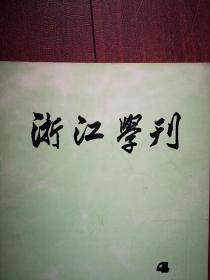 浙江學刊
4